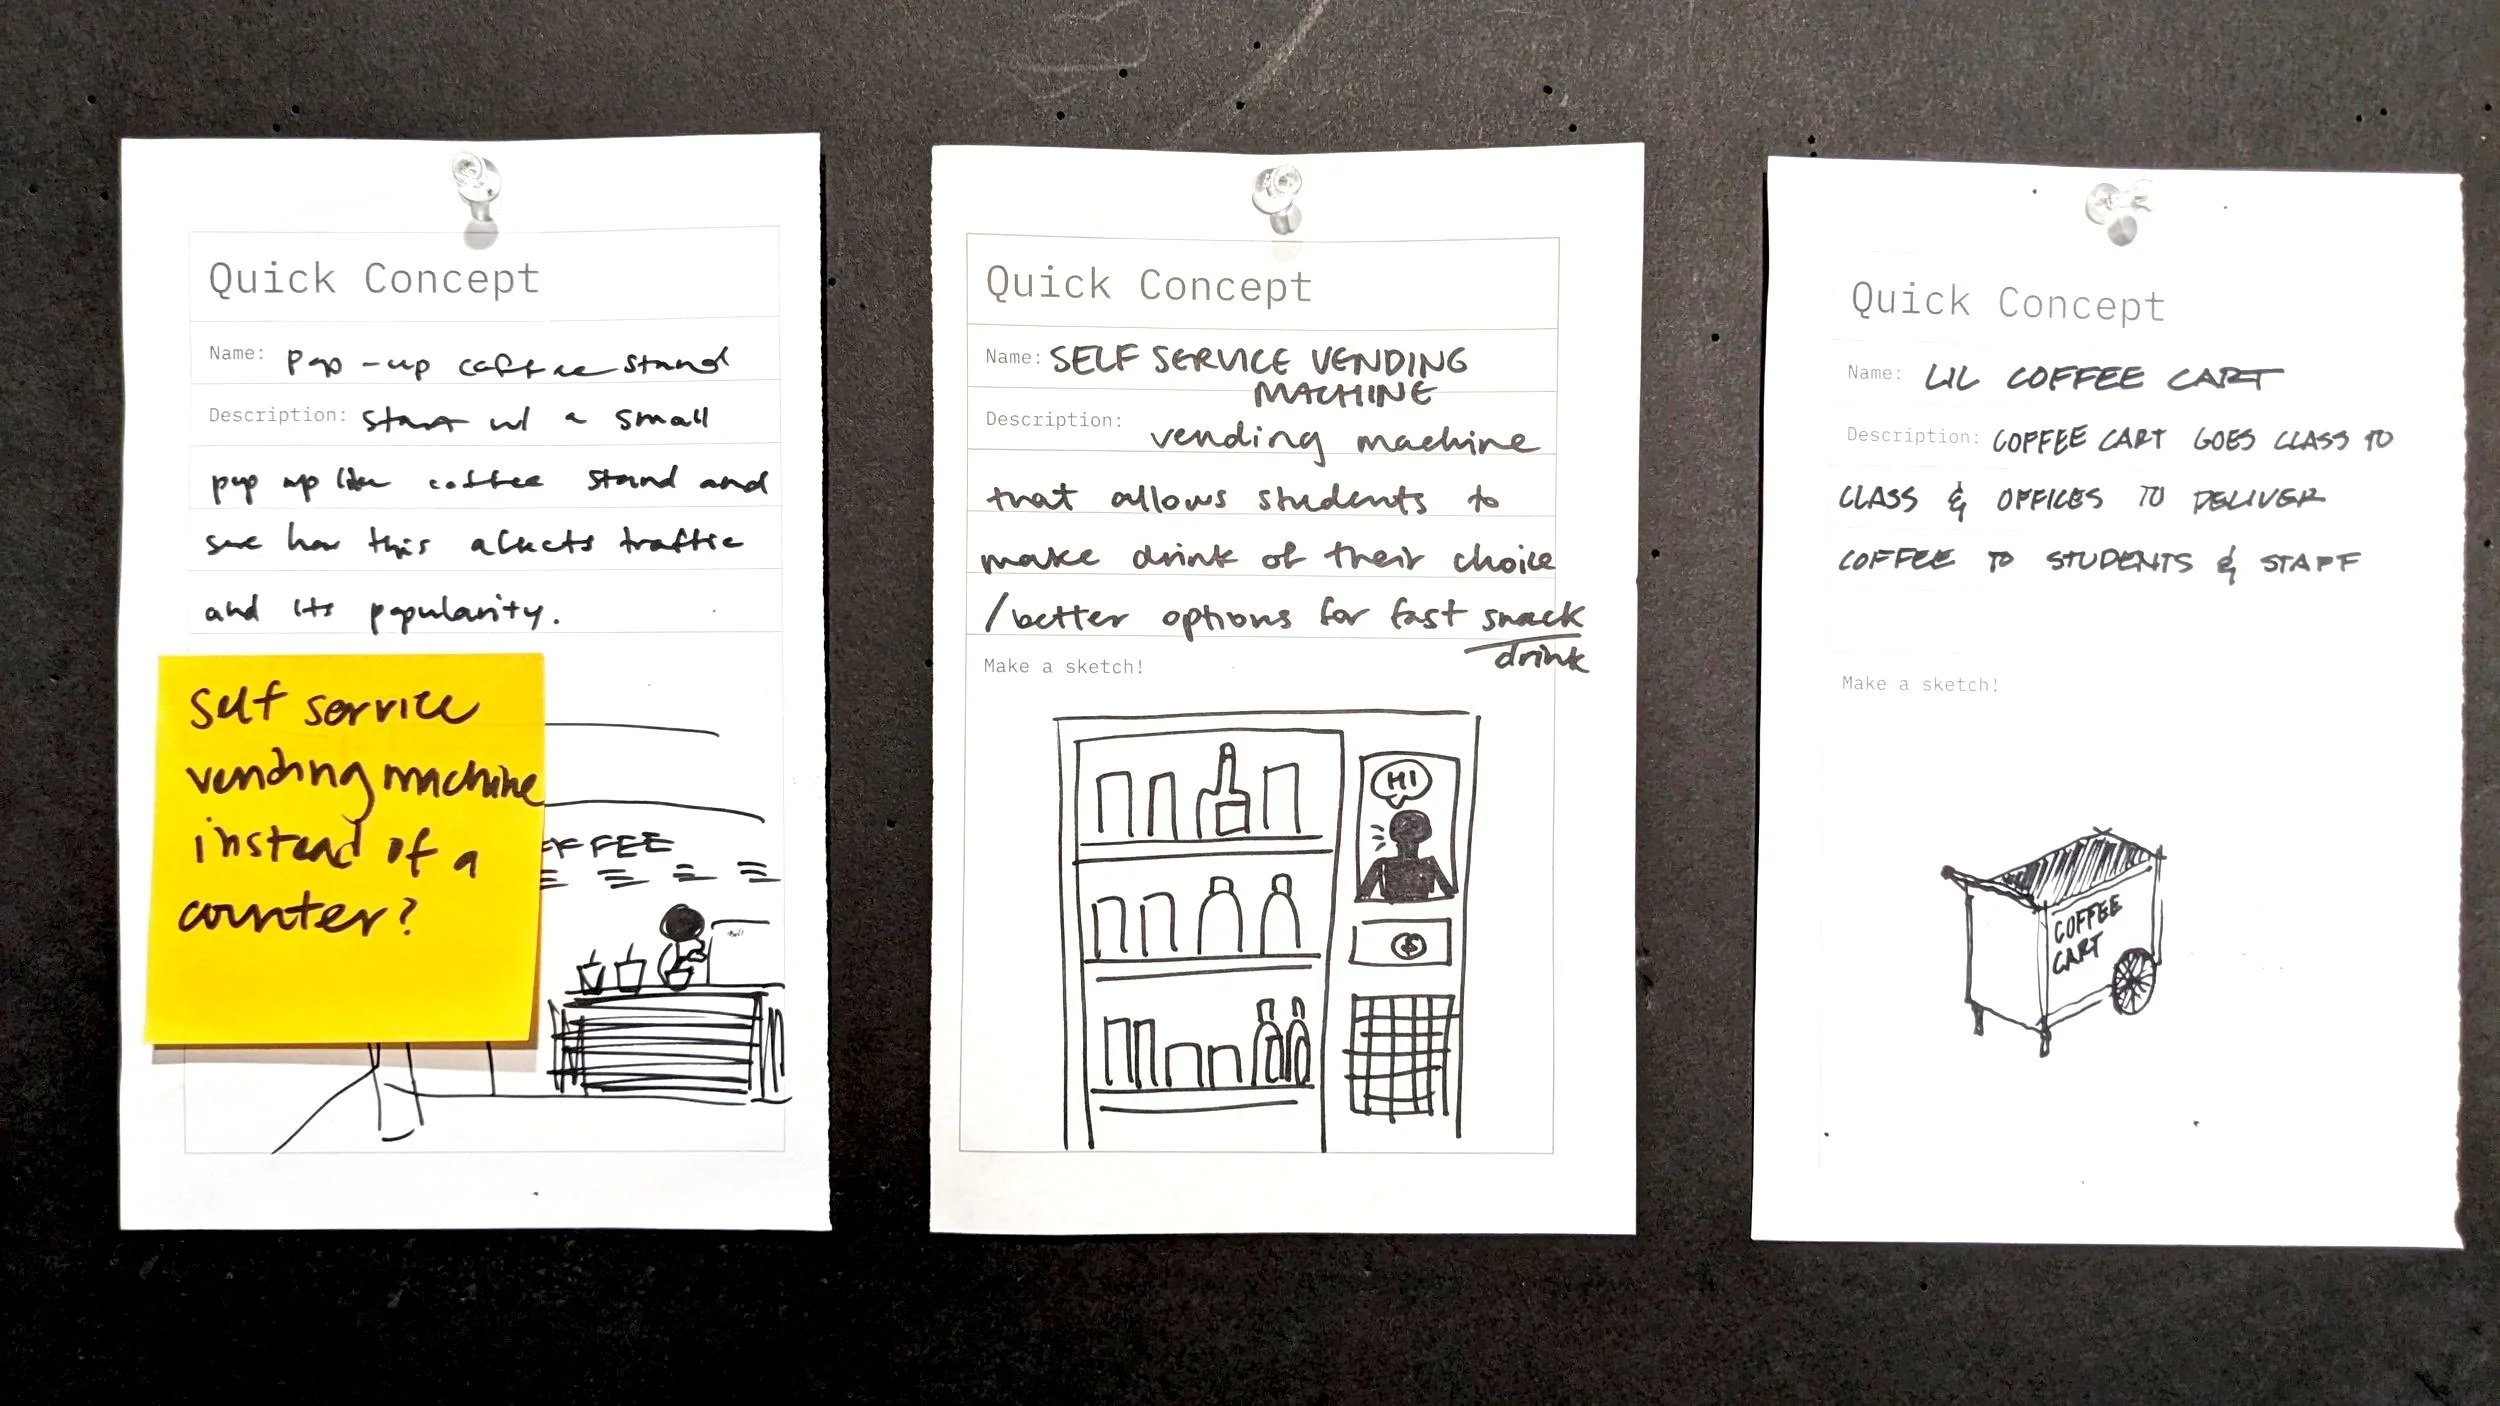 Quick Concept
Name: Pop-up coffee stand
Description: start w/ a small
pop up like coffee stand and
see how this affects traffic
and its popularity.
Self service
vending machine
instead of a
counter?
FFEE
Quick Concept
Name: SELF SERVICE VENDING
MACHINE
Description: vending machine
that allows students to
make drink of their choice
/better options for fast snack
drink
Make a sketch!
HI
$
Quick Concept
Name: LIL COFFEE CART
Description: COFFEE CART GOES CLASS TO
CLASS & OFFICES TO DELIVER
COFFEE TO STUDENTS & STAFF
Make a sketch!
COFFEE
CART